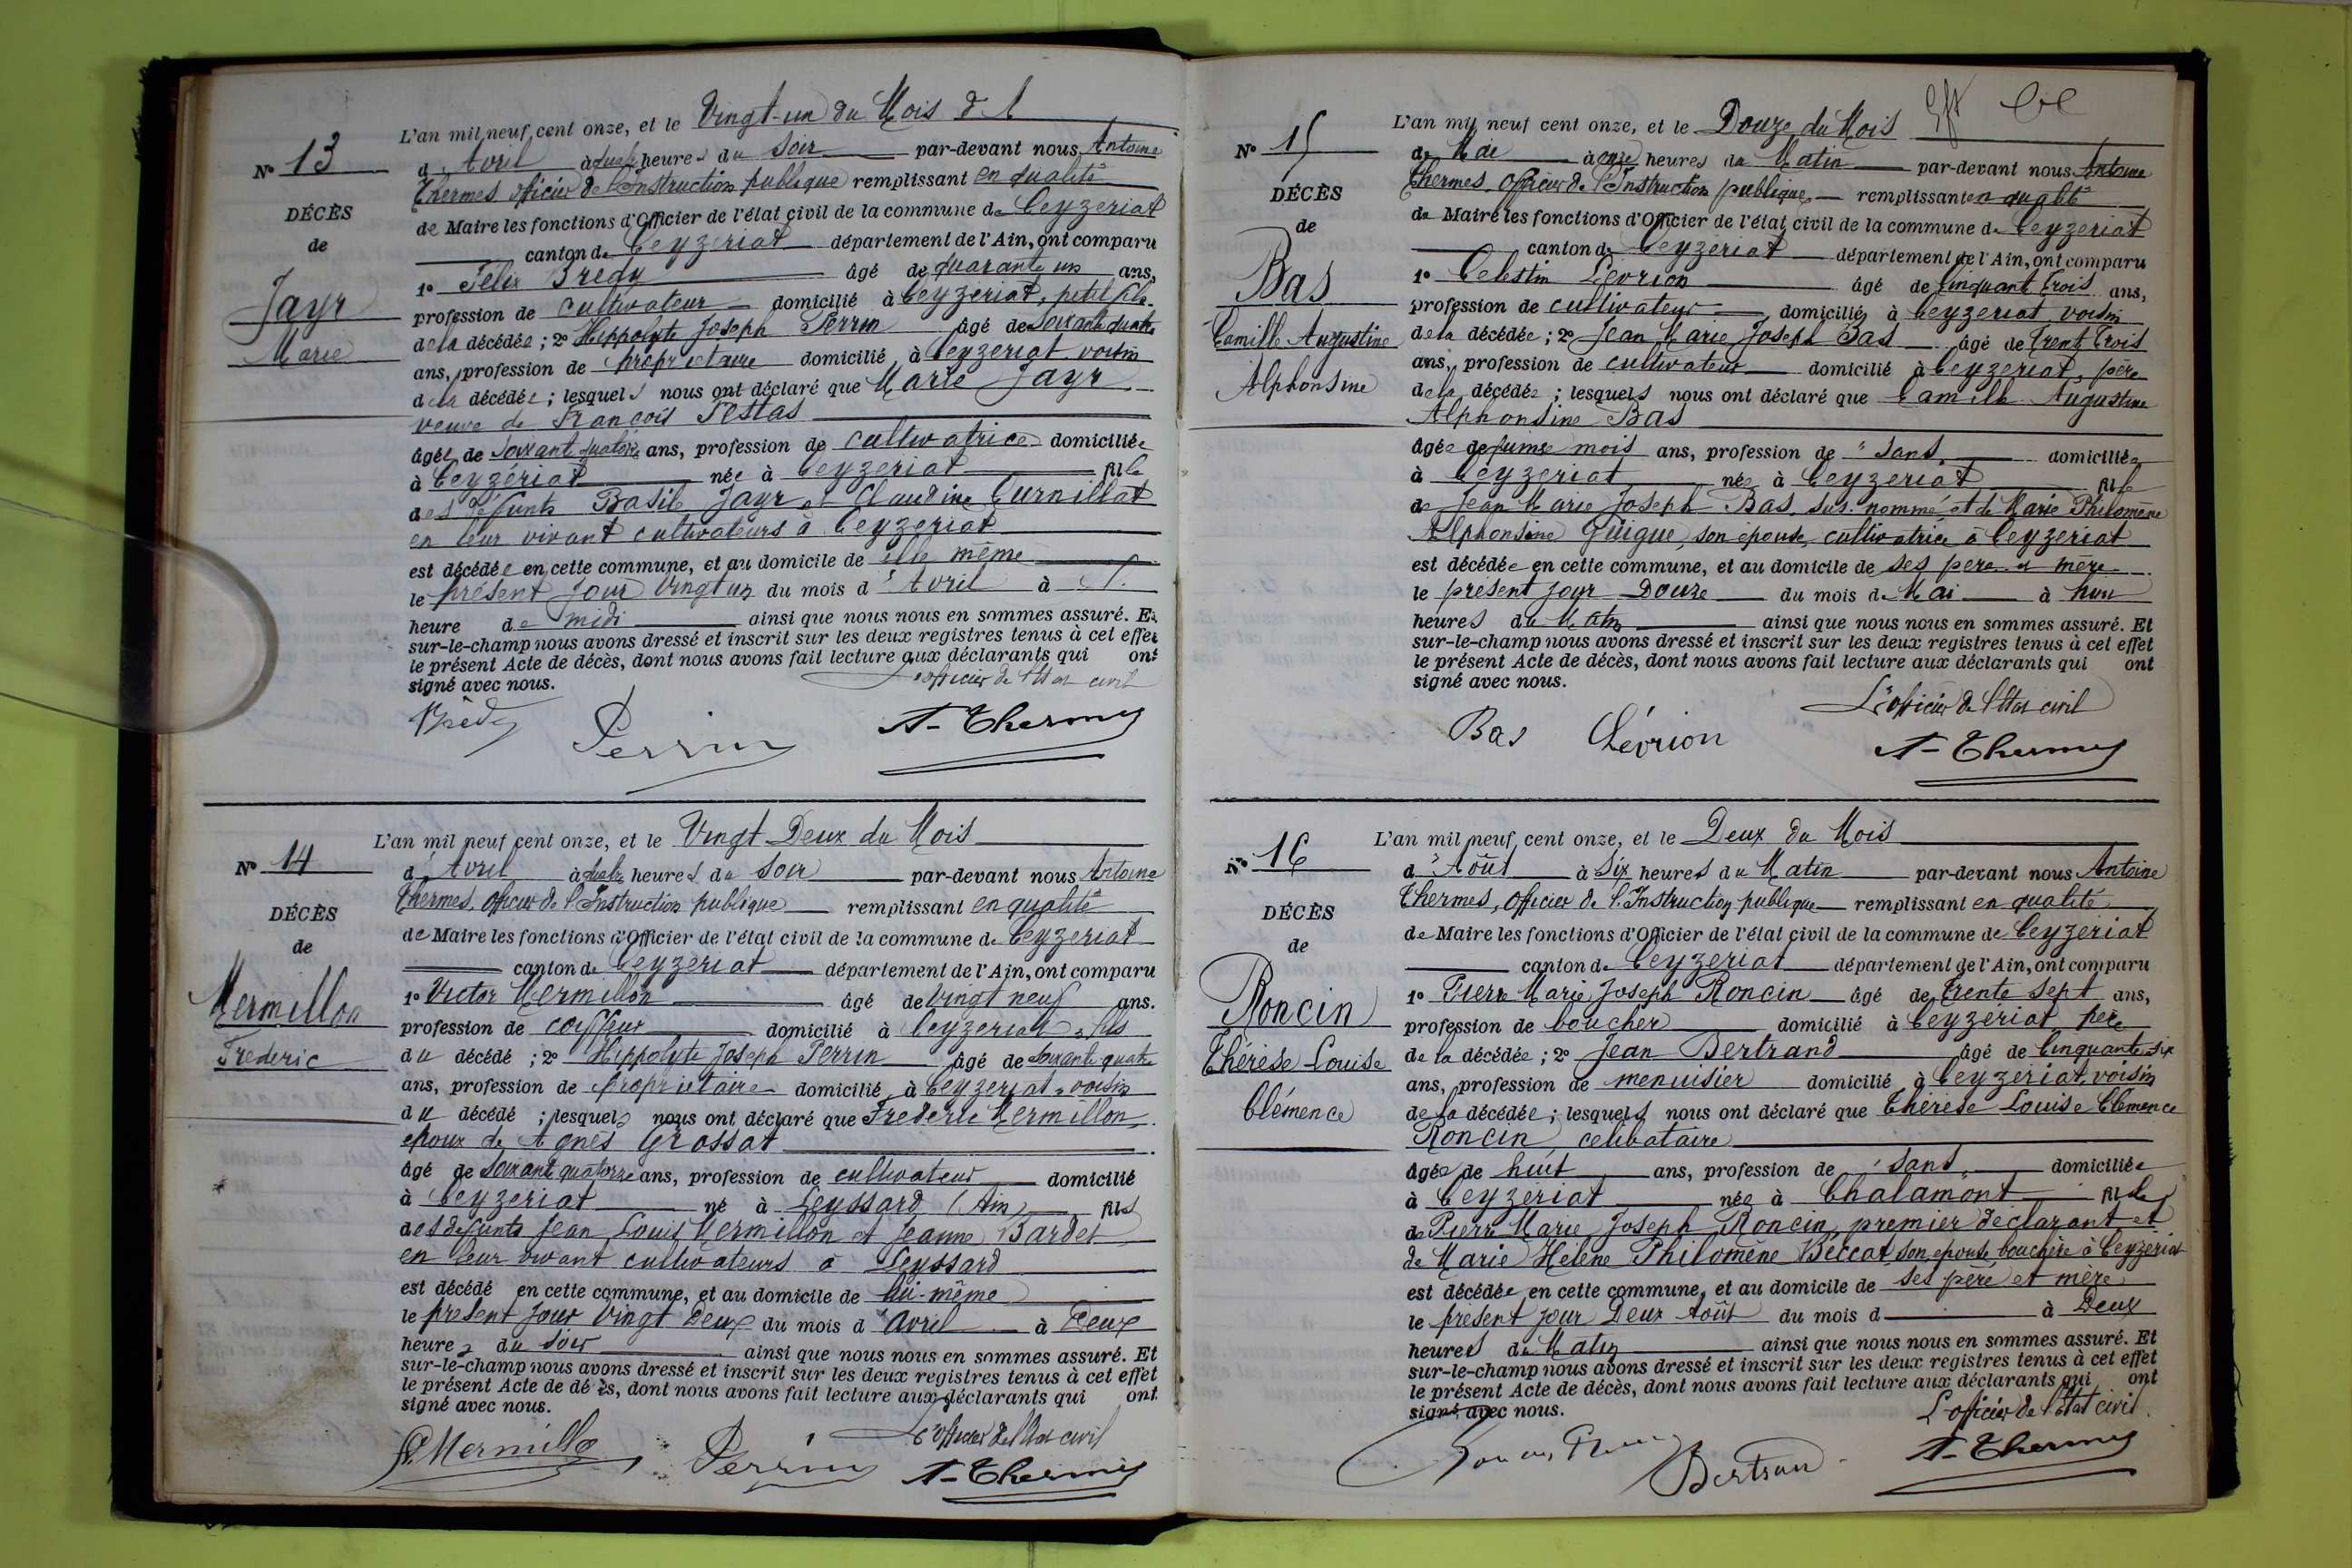 L'an mil neuf cent onze, et le Vingt-un du Mois d
N° 13
d'Avril à quatre heures du Soir par-devant nous Antoine
Thermes officier de l'Instruction publique remplissant en qualité
DÉCÈS
de Maire les fonctions d'Officier de l'état civil de la commune de Ceyzeriat
de
canton de Ceyzeriat département de l'Ain, ont comparu
1° Felix Bredy âgé de quarante un ans,
Jayr
profession de cultivateur domicilié à Ceyzeriat, petit fils
Marie
de la décédée ; 2° Hippolyte Joseph Perrin âgé de Soixante quatre
ans, profession de propriétaire domicilié à Ceyzeriat voisin
de la décédée ; lesquels nous ont déclaré que Marie Jayr
veuve de François Pestas
âgée de Soixant quatorze ans, profession de cultivatrice domiciliée
à Ceyzériat née à Ceyzeriat fille
des défunts Basile Jayr et Claudine Turnillat
en leur vivant cultivateurs à Ceyzeriat
est décédée en cette commune, et au domicile de elle même
le présent jour Vingt un du mois d'Avril à
heure de midi ainsi que nous nous en sommes assuré. Et
sur-le-champ nous avons dressé et inscrit sur les deux registres tenus à cet effet
le présent Acte de décès, dont nous avons fait lecture aux déclarants qui ont
signé avec nous.
L'officier de l'Etat civil
Brédy Perrin A-Thermes
L'an mil neuf cent onze, et le Vingt Deux du Mois
N° 14
d'Avril à quatre heures du Soir par-devant nous Antoine
Thermes, officier de l'Instruction publique remplissant en qualité
DÉCÈS
de Maire les fonctions d'Officier de l'état civil de la commune de Ceyzeriat
de
canton de Ceyzeriat département de l'Ain, ont comparu
Mermillon
1° Victor Mermillon âgé de vingt neuf ans.
profession de coiffeur domicilié à Ceyzeriat, fils
Frederic
du décédé ; 2° Hippolyte Joseph Perrin âgé de Soixante quatre
ans, profession de propriétaire domicilié à Ceyzeriat, voisin
du décédé ; lesquels nous ont déclaré que Frederic Mermillon
epoux de Agnès Grossat
âgé de Soixant quatorze ans, profession de cultivateur domicilié
à Ceyzeriat né à Leyssard (Ain) fils
des defunts Jean Louis Mermillon et Jeanne Bardet
en leur vivant cultivateurs à Leyssard
est décédé en cette commune, et au domicile de lui-même
le présent jour Vingt Deux du mois d'avril à Deux
heures du Soir ainsi que nous nous en sommes assuré. Et
sur-le-champ nous avons dressé et inscrit sur les deux registres tenus à cet effet
le présent Acte de dé ès, dont nous avons fait lecture aux déclarants qui ont
signé avec nous.
L'officier de l'Etat civil
Mermillo Perrin A-Thermes
L'an mil neuf cent onze, et le Douze du Mois
N° 15
de Mai à onze heures du Matin par-devant nous Antoine
Thermes, officier de l'Instruction publique remplissant en qualité
DÉCÈS
de Maire les fonctions d'Officier de l'état civil de la commune de Ceyzeriat
de
canton de Ceyzeriat département de l'Ain, ont comparu
Bas
1° Celestin Levrion âgé de Cinquant Trois ans,
profession de cultivateur domicilié à Ceyzeriat voisin
Camille Augustine
de la décédée ; 2° Jean Marie Joseph Bas âgé de Trente Trois
ans, profession de cultivateur domicilié à Ceyzeriat, père
Alphonsine
de la décédée ; lesquels nous ont déclaré que Camille Augustine
Alphonsine Bas
âgée de quinze mois ans, profession de "Sans" domiciliée
à Ceyzeriat née à Ceyzeriat fille
de Jean Marie Joseph Bas, sus-nommé et de Marie Philomène
Alphonsine Guigue, son épouse, cultivatrice à Ceyzeriat
est décédée en cette commune, et au domicile de ses père et mère
le présent jour Douze du mois de Mai à
heures du Matin ainsi que nous nous en sommes assuré. Et
sur-le-champ nous avons dressé et inscrit sur les deux registres tenus à cet effet
le présent Acte de décès, dont nous avons fait lecture aux déclarants qui ont
signé avec nous.
L'officier de l'Etat civil
Bas Lévrion A-Thermes
L'an mil neuf cent onze, et le Deux du Mois
N° 16
d'Août à Six heures du Matin par-devant nous Antoine
Thermes, officier de l'Instruction publique remplissant en qualité
DÉCÈS
de Maire les fonctions d'Officier de l'état civil de la commune de Ceyzeriat
de
canton de Ceyzeriat département de l'Ain, ont comparu
Roncin
1° Pierre Marie Joseph Roncin âgé de Trente Sept ans,
profession de boucher domicilié à Ceyzériat père
Thérèse Louise
de la décédée ; 2° Jean Bertrand âgé de Cinquante six
ans, profession de menuisier domicilié à Ceyzériat, voisin
Clémence
de la décédée ; lesquels nous ont déclaré que Thérèse Louise Clémence
Roncin célibataire
âgée de huit ans, profession de "Sans" domiciliée
à Ceyzeriat née à Chalamont fille
de Pierre Marie Joseph Roncin, premier déclarant et
de Marie Hélène Philomène Beccat son épouse bouchère à Ceyzériat
est décédée en cette commune, et au domicile de ses père et mère
le présent jour Deux Août du mois d à Deux
heures du Matin ainsi que nous nous en sommes assuré. Et
sur-le-champ nous avons dressé et inscrit sur les deux registres tenus à cet effet
le présent Acte de décès, dont nous avons fait lecture aux déclarants qui ont
signé avec nous.
L'officier de l'Etat civil
Bertran A-Thermes